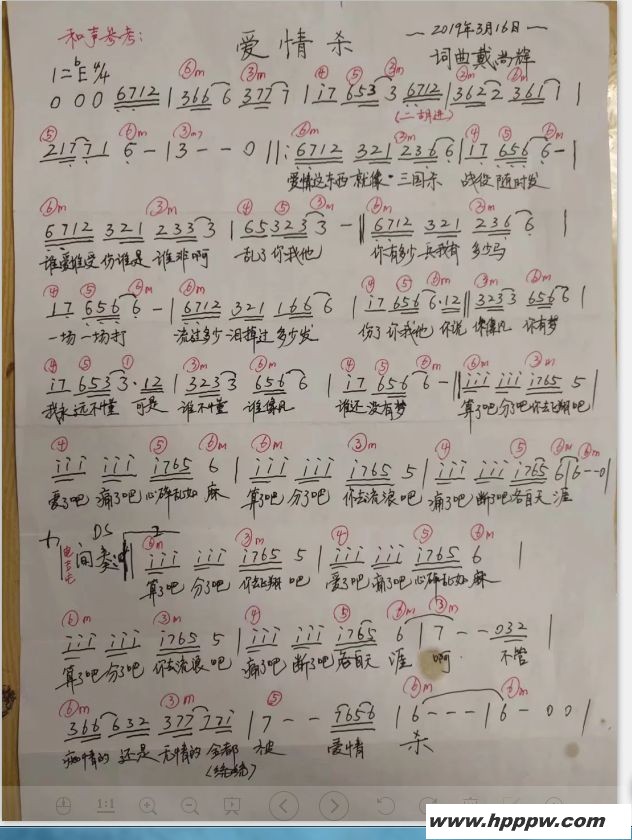 和声参考:
爱情杀
2019年3月16日
词曲戴尚辉
1=bE 4/4
⑥m ③m ④ ⑤ ③m ③m ⑥m
0 0 0 6712 | 366 6 377 7 | i7 653 3 6712 | 362 2 361 1 |
(二胡进)
⑤ ⑥m ③m7 ⑥m ③m ④ ⑤ ⑥m
2171 6 - | 3 - - 0 ‖: 6712 321 236 6 | 17 656 6 - |
爱情这东西就像 三国杀 战役随时发
⑥m ③m ④ ⑤ ③m ⑥m ③m
6712 321 233 3 | 65323 3 - ‖ 6712 321 236 6 |
谁爱谁受伤谁是谁非啊 乱了你我他 你有多少兵我有多少马
④ ⑤ ⑥m ⑥m ④ ⑤ ⑥m ③m ⑥m
17 656 6 - | 6712 321 166 6 | i7 656 6·12 | 323 3 656 6 |
一场一场打 流过多少泪掉过多少发 伤了你我他 你说 你有梦
④ ⑤ ① ③m ⑥m ④ ⑤ ⑥m ⑥m ③m
i7 653 3·12 | 323 3 656 6 | i7 656 6 - ‖ iii iii i765 5 |
我永远不懂 可是 谁不懂 谁 谁还没有梦 算了吧分了吧你去飞翔吧
④ ⑤ ⑥m ⑥m ③m ④ ⑤ ⑥m ⑥m
iii iii i765 6 | iii iii i765 5 | iii iii i765 6 | 6 - - 0 |
爱了吧 痛了吧 心碎乱如 麻 算了吧 分了吧 你去流浪 吧 痛了吧 断了吧各自天 涯
DS 2
间奏 ⑥m ③m ④ ⑤ ⑥m
iii iii i765 5 | iii iii i765 6 |
算了吧 分了吧 你去飞翔 吧 爱了吧 痛了吧心碎乱如 麻
⑥m ③m ④ ⑤ ⑥m ③m
iii iii i765 5 | iii iii i765 6 | 7 - - 032 |
算了吧 分了吧 你去流浪 吧 痛了吧 断了吧 各自天 涯 啊 不管
⑥m ③m ⑤ ⑥m ⑥m
366 632 377 77i | 7 - - 7656 | 6 - - - | 6 - 0 0 |
痴情的 还是 无情的 全都 被 爱情 杀
(统统)
1:1
www.hpppw.com